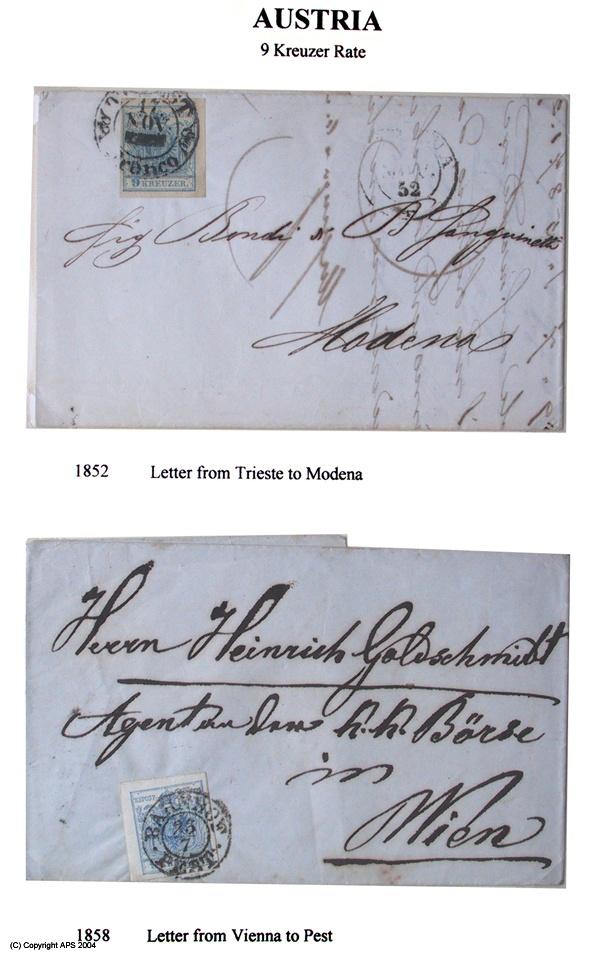 AUSTRIA
9 Kreuzer Rate
17
NOV
franco
9 KREUZER.
52
Sig Biondi & B Sanguinetti
Modena
1852 Letter from Trieste to Modena
Herrn Heinrich Goldschmidt
Agent an der k.k. Börse
in
Wien
BAHNHOF
23
7
PEST
1858 Letter from Vienna to Pest
(C) Copyright APS 2004